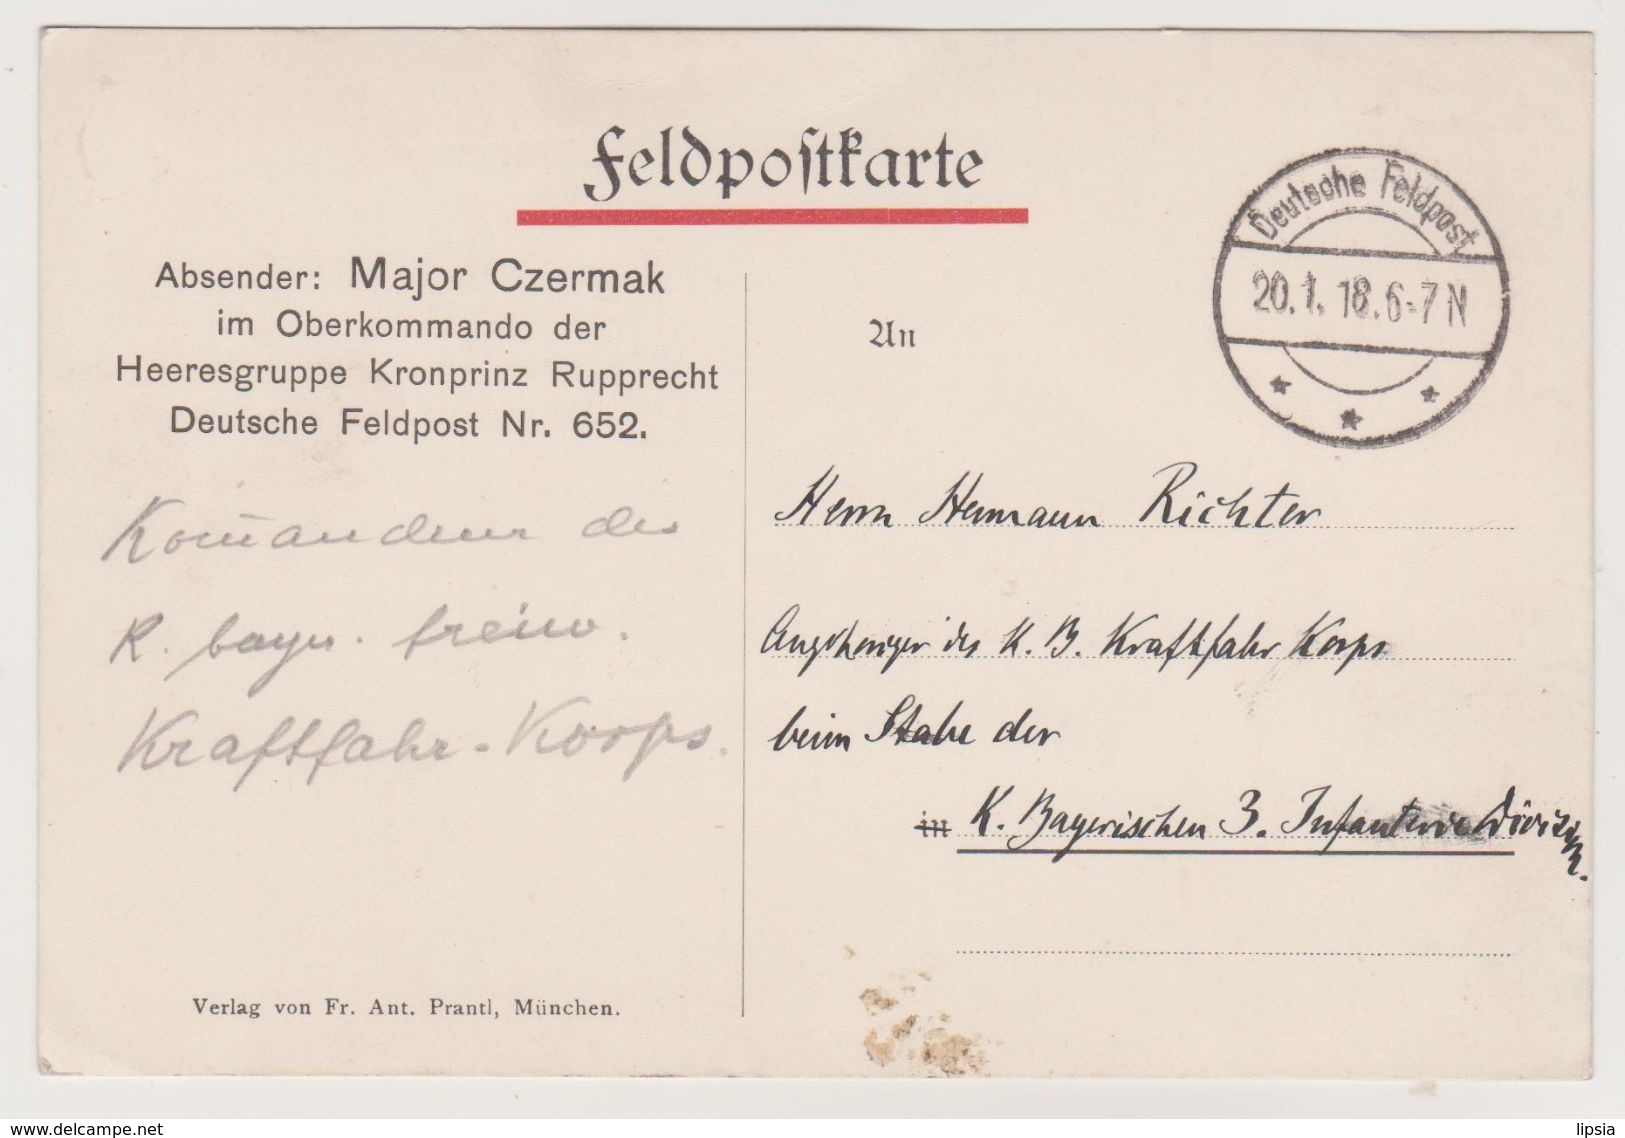 Feldpostkarte
Deutsche Feldpost
20.1.18.6-7N
Absender: Major Czermak
im Oberkommando der
Heeresgruppe Kronprinz Rupprecht
Deutsche Feldpost Nr. 652.
Kom̄andeur des
K. bayr. freiw.
Kraftfahr-Korps.
Verlag von Fr. Ant. Prantl, München.
An
Herrn Hermann Richter
Angehöriger des K. B. Kraftfahr Korps
beim Stabe der
in K. Bayerischen 3. Infanterie Division.
www.delcampe.net
lipsia